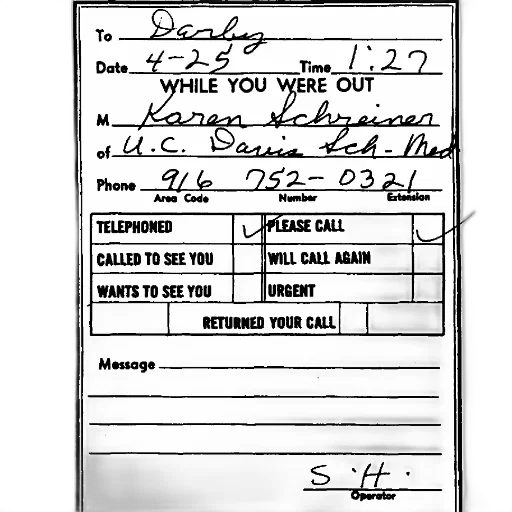 To Darby
Date 4-25 Time 1:27
WHILE YOU WERE OUT
M Karen Schreiner
of U.C. Davis Sch-Med
Phone 916 752-0321
Area Code Number Extension
TELEPHONED ✓ PLEASE CALL ✓
CALLED TO SEE YOU WILL CALL AGAIN
WANTS TO SEE YOU URGENT
RETURNED YOUR CALL
Message
S.H.
Operator